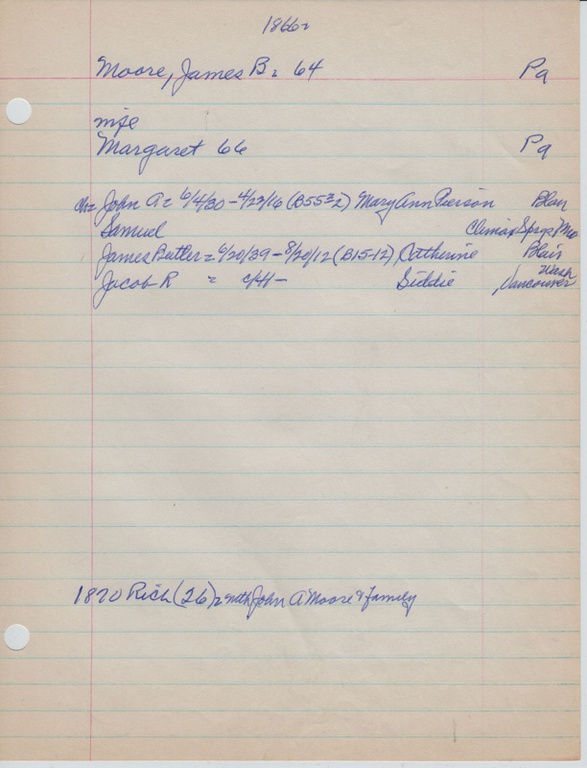 1866=
Moore, James B = 64 Pa
wife
Margaret 66 Pa
ch= John A = 6/4/30 - 4/23/16 (B55-2) Mary Ann Pierson Blair
Samuel Climax Spgs, Mo
James Butler = 6/20/39 - 8/20/12 (B15-12) Catherine Blair
Jacob R = c/41 - Siddie Wash
Vancouver
1870 Rich (26) = with John A Moore & family